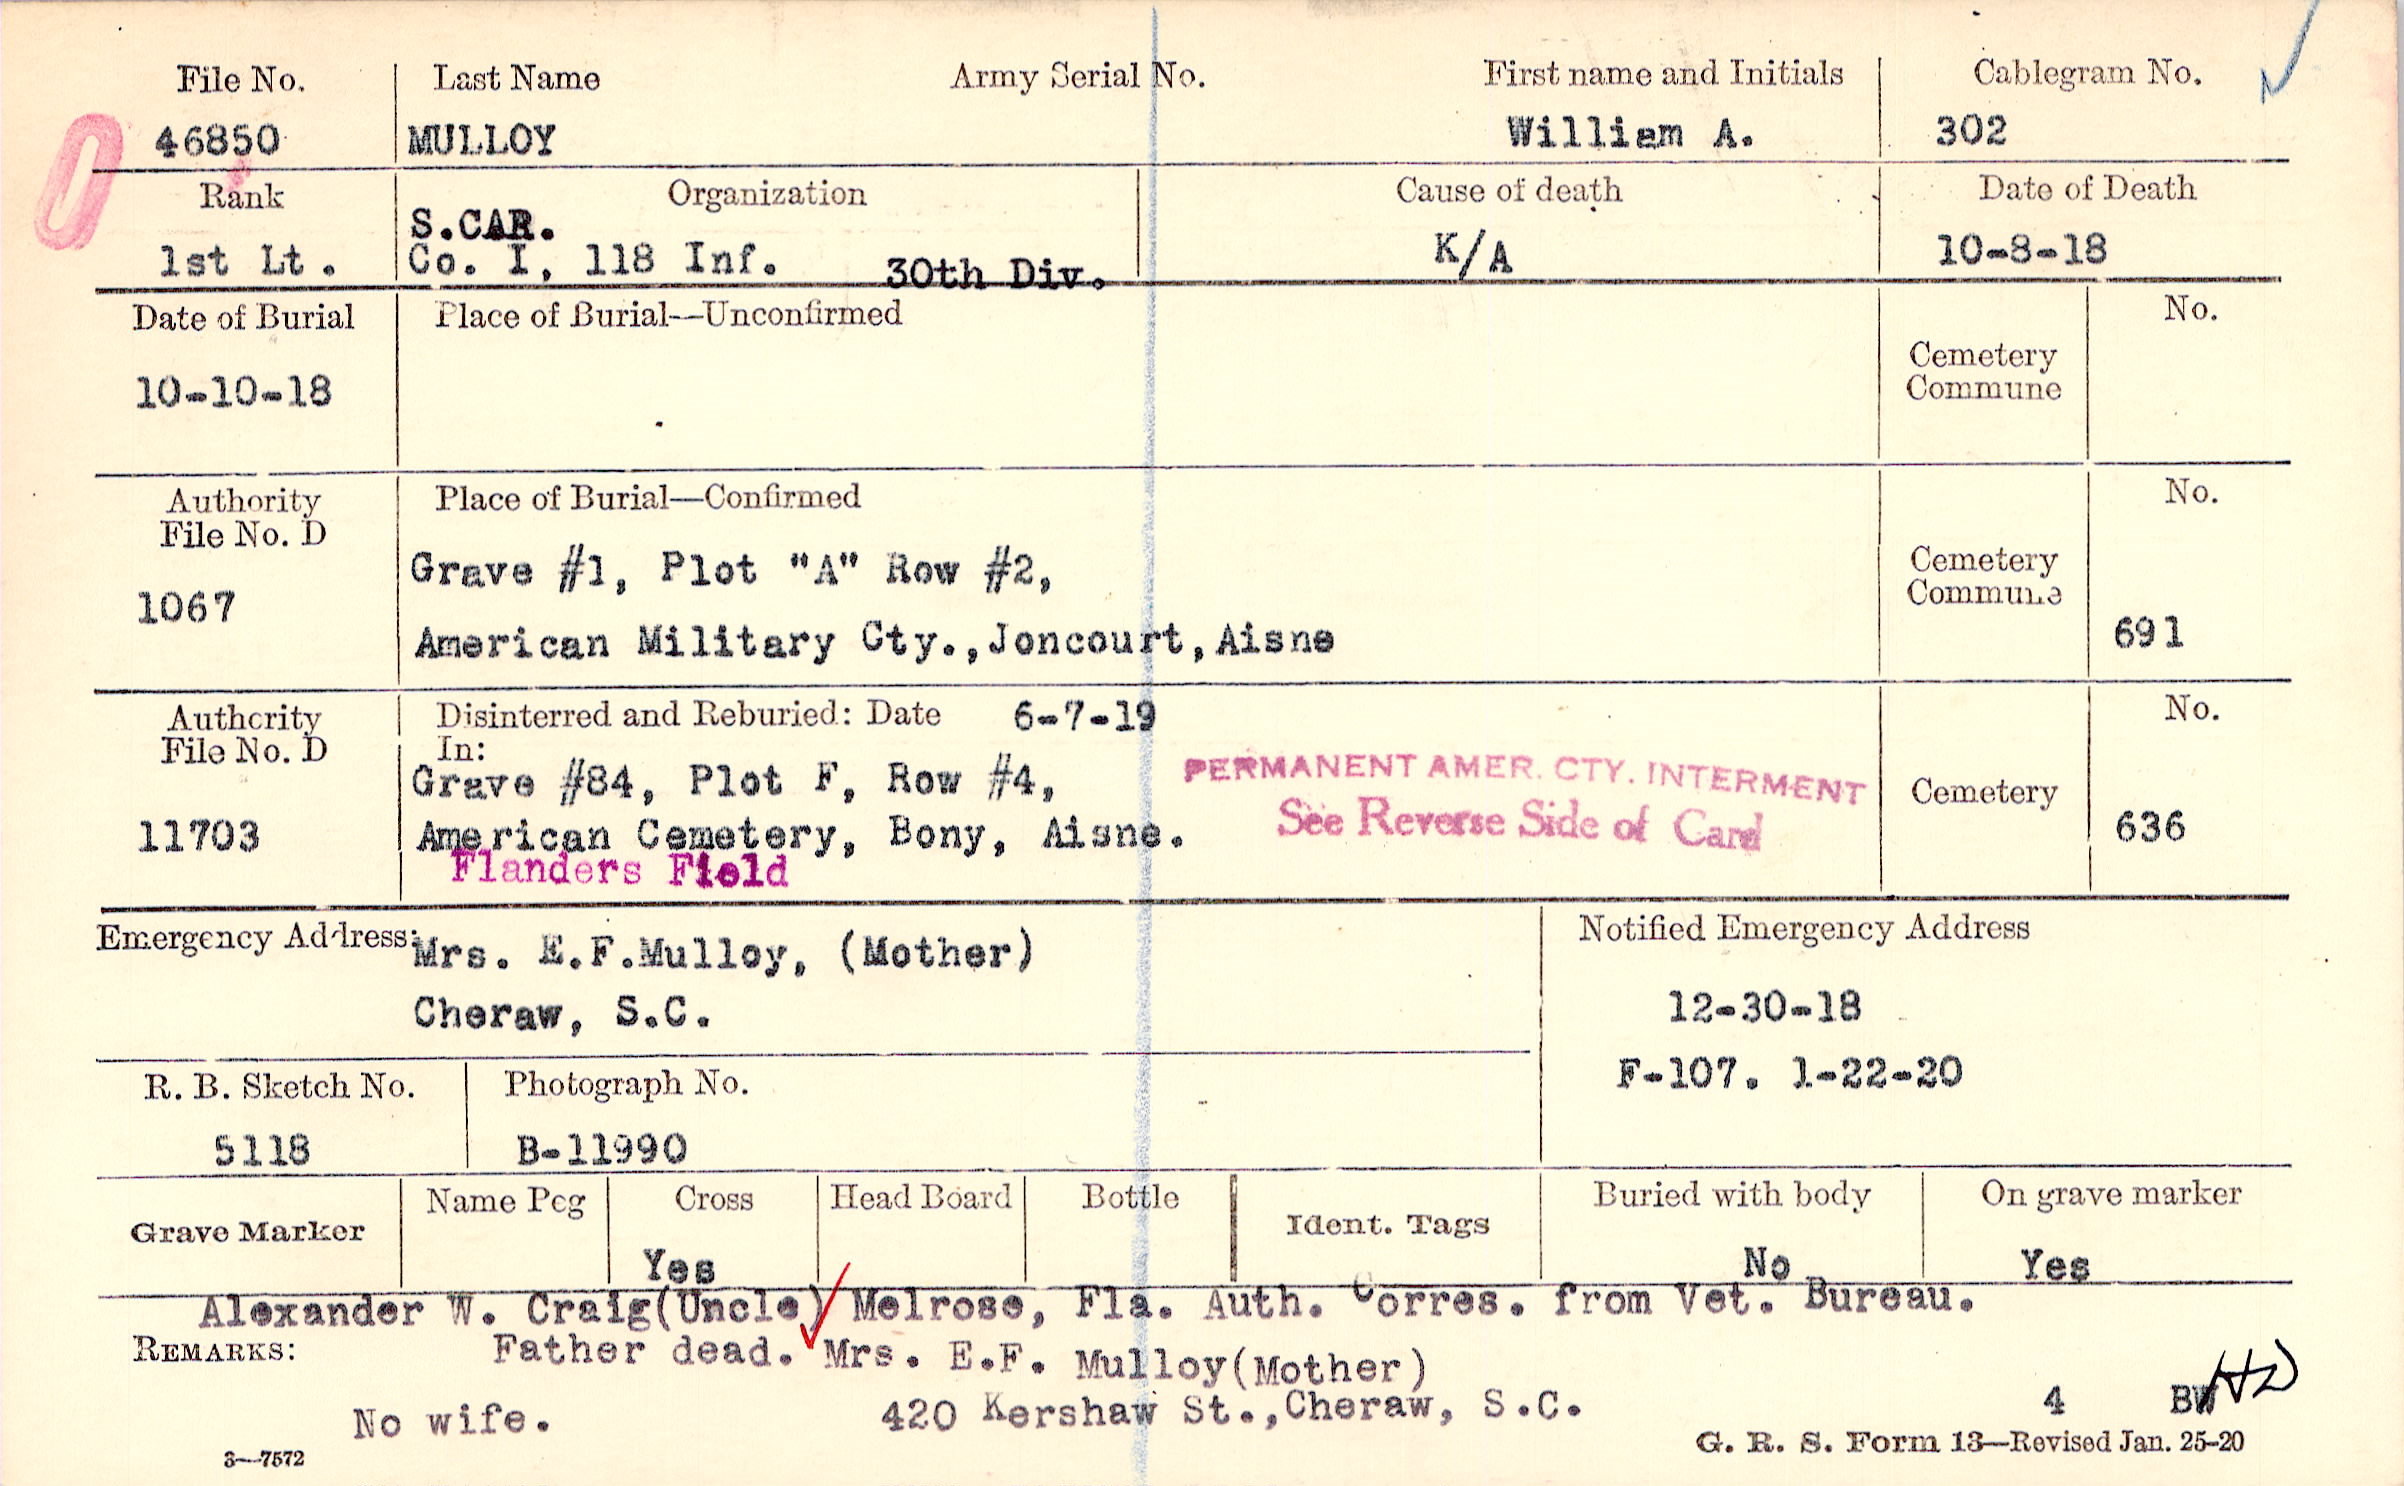 File No. Last Name Army Serial No. First name and Initials Cablegram No.
46850 MULLOY William A. 302
Rank Organization Cause of death Date of Death
S.CAR.
1st Lt. Co. I, 118 Inf. 30th Div. K/A 10-8-18
Date of Burial Place of Burial—Unconfirmed No.
Cemetery
Commune
10-10-18
Authority Place of Burial—Confirmed No.
File No. D
Grave #1, Plot "A" Row #2, Cemetery
Commune
1067
American Military Cty.,Joncourt,Aisne 691
Authority Disinterred and Reburied: Date 6-7-19 No.
File No. D In:
Grave #84, Plot F, Row #4, PERMANENT AMER. CTY. INTERMENT Cemetery
11703 American Cemetery, Bony, Aisne. See Reverse Side of Card 636
Flanders Field
Emergency Address: Mrs. E.F.Mulloy, (Mother) Notified Emergency Address
Cheraw, S.C. 12-30-18
F-107. 1-22-20
R. B. Sketch No. Photograph No.
5118 B-11990
Grave Marker Name Peg Cross Head Board Bottle Ident. Tags Buried with body On grave marker
Yes No Yes
Alexander W. Craig(Uncle) Melrose, Fla. Auth. Corres. from Vet. Bureau.
REMARKS: Father dead. Mrs. E.F. Mulloy(Mother)
No wife. 420 Kershaw St.,Cheraw, S.C. 4 BW HD
3—7572 G. R. S. Form 13—Revised Jan. 25-20